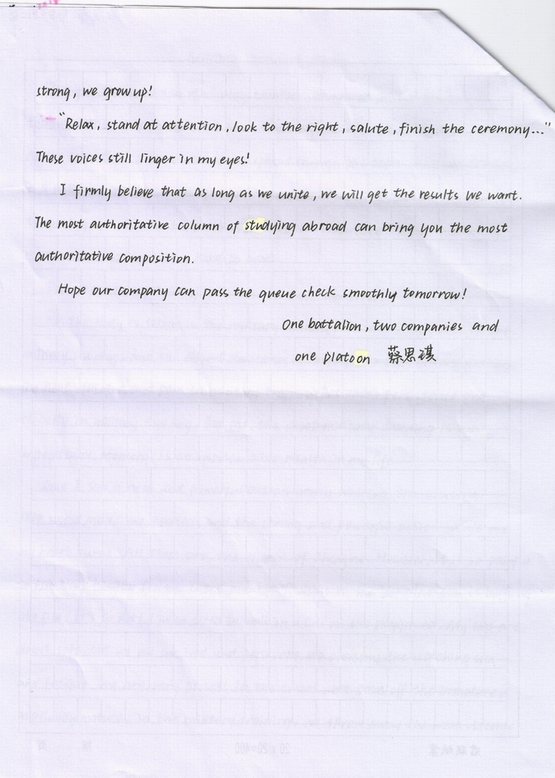 strong, we grow up!
"Relax, stand at attention, look to the right, salute, finish the ceremony..."
These voices still linger in my eyes!
I firmly believe that as long as we unite, we will get the results we want.
The most authoritative column of studying abroad can bring you the most
authoritative composition.
Hope our company can pass the queue check smoothly tomorrow!
One battalion, two companies and
one platoon 蔡思琪